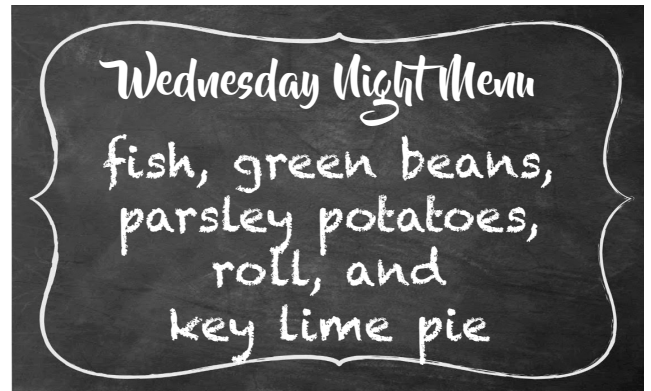 Wednesday Night Menu
fish, green beans,
parsley potatoes,
roll, and
key lime pie